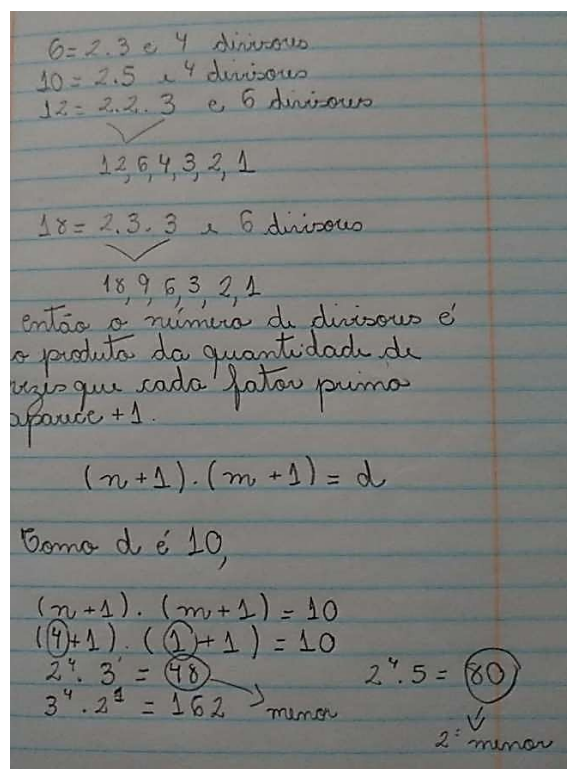 6 = 2.3 e 4 divisores
10 = 2.5 e 4 divisores
12 = 2.2.3 e 6 divisores
12, 6, 4, 3, 2, 1
18 = 2.3.3 e 6 divisores
18, 9, 6, 3, 2, 1
então o número de divisores é
o produto da quantidade de
vezes que cada fator primo
aparece +1.
(n+1).(m+1) = d
Como d é 10,
(n+1).(m+1) = 10
(4+1).(1+1) = 10
2⁴.3¹ = 48 2⁴.5 = 80
3⁴.2¹ = 162 menor
2º menor